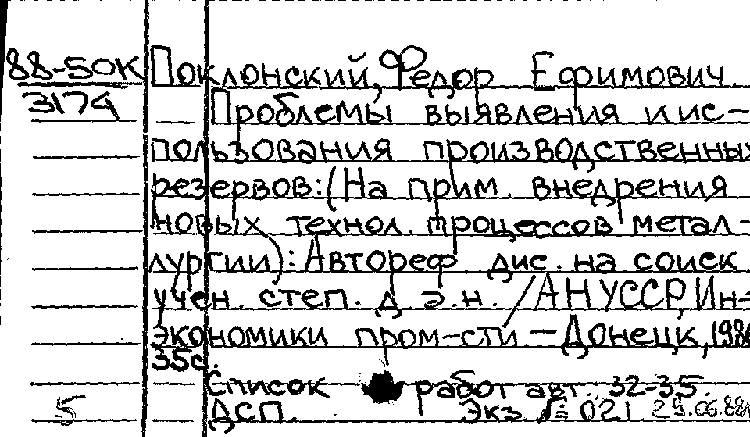 88-50К Поклонский, Федор Ефимович
3174 — Проблемы выявления и ис-
пользования производственных
резервов: (На прим. внедрения
новых технол. процессов метал-
лургии): Автореф. дис. на соиск
учен. степ. д.э.н. / АН УССР, Ин-
экономики пром-сти — Донецк, 198
35с
Список работ авт.: 32-35.
5 ДСП. Экз. № 021 25.06.88